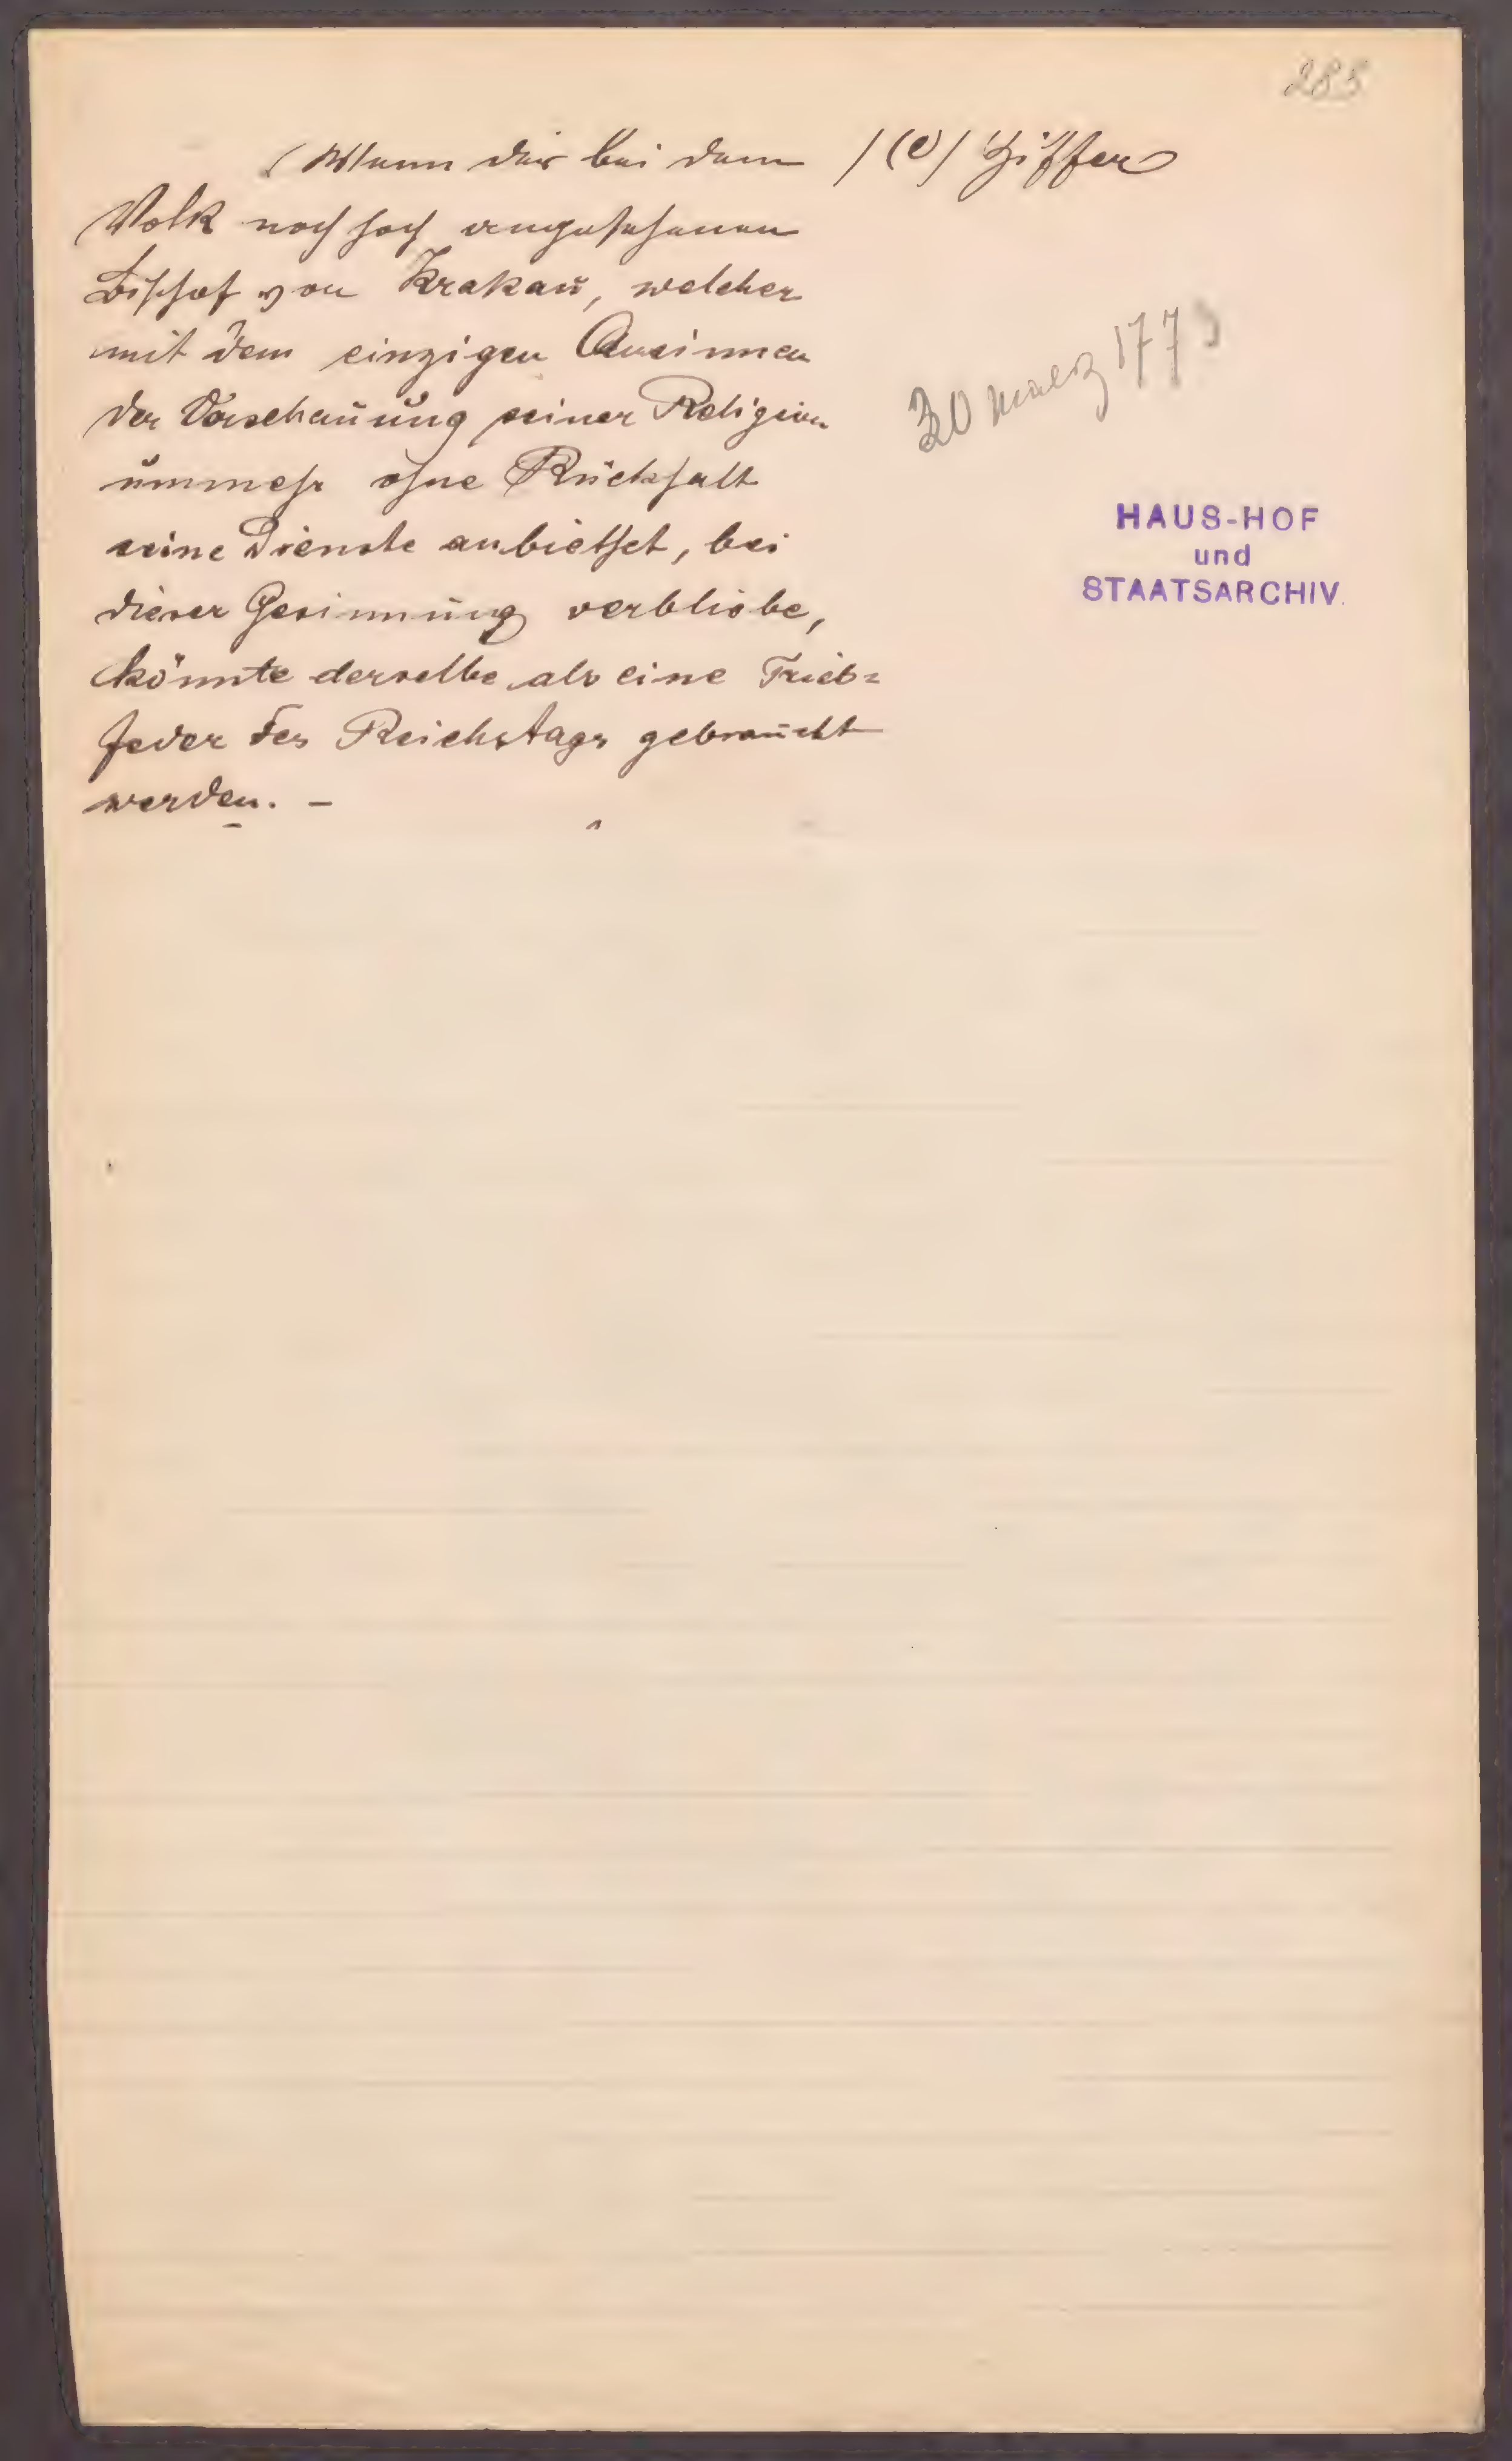 285
(Wann der bei dem /(e)/ Ziffer
Volk noch hoch angesehenen
Bischof von Krakau, welcher
mit dem einzigen Ansinnen
der Verschauung seiner Religion
nunmehr ohne Rückhalt
seine Dienste anbiethet, bei
dieser Gesinnung verbliebe,
könnte derselbe als eine Trieb=
feder des Reichstags gebraucht
werden. –
30 maerz 1773
HAUS-HOF
und
STAATSARCHIV.